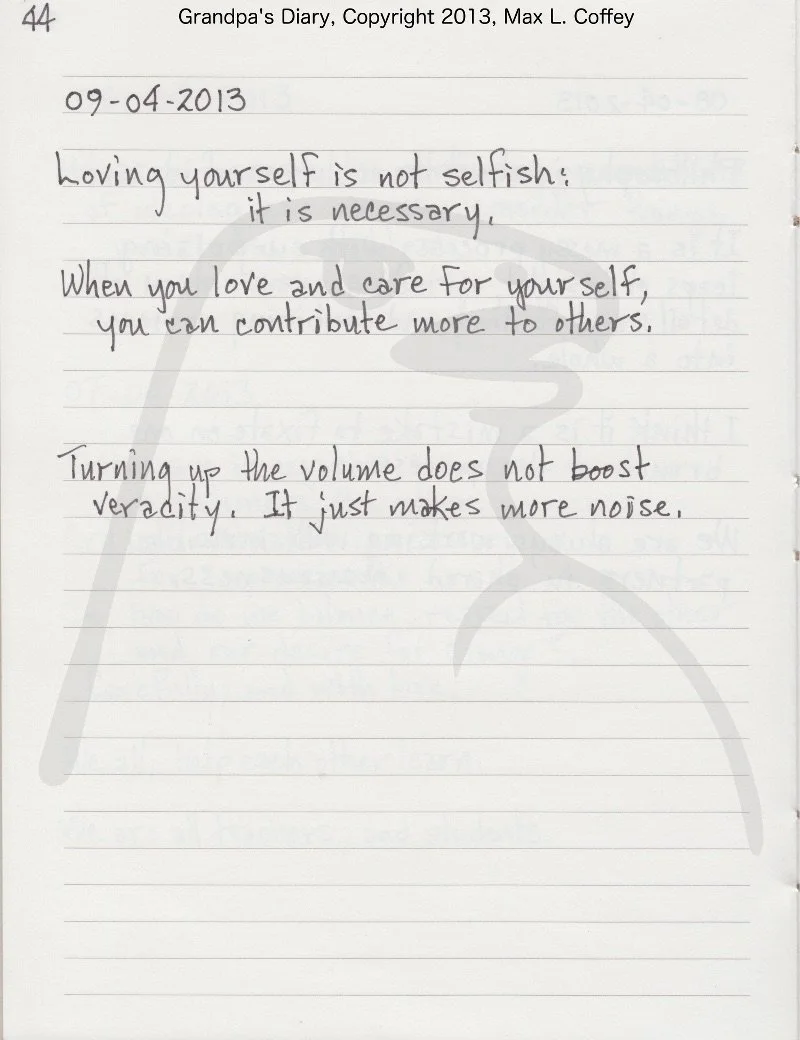 44
Grandpa's Diary, Copyright 2013, Max L. Coffey
09-04-2013
Loving yourself is not selfish:
it is necessary.
When you love and care for yourself,
you can contribute more to others.
Turning up the volume does not boost
veracity. It just makes more noise.